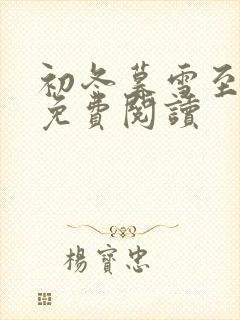 初冬暮雪至
免費閱讀
楊寶忠